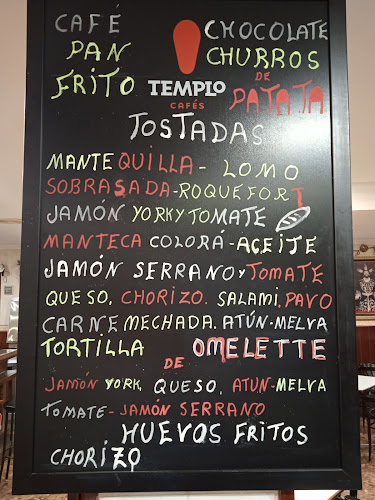 CAFÉ
PAN
FRITO
TEMPLO
CAFÉS
CHOCOLATE
CHURROS
DE
PATATA
TOSTADAS
MANTEQUILLA - LOMO
SOBRASADA - ROQUEFORT
JAMÓN YORK Y TOMATE
MANTECA COLORÁ - ACEITE
JAMÓN SERRANO Y TOMATE
QUESO, CHORIZO. SALAMI, PAVO
CARNE MECHADA. ATÚN-MELVA
TORTILLA OMELETTE
DE
JAMÓN YORK, QUESO, ATUN-MELVA
TOMATE - JAMÓN SERRANO
HUEVOS FRITOS
CHORIZO